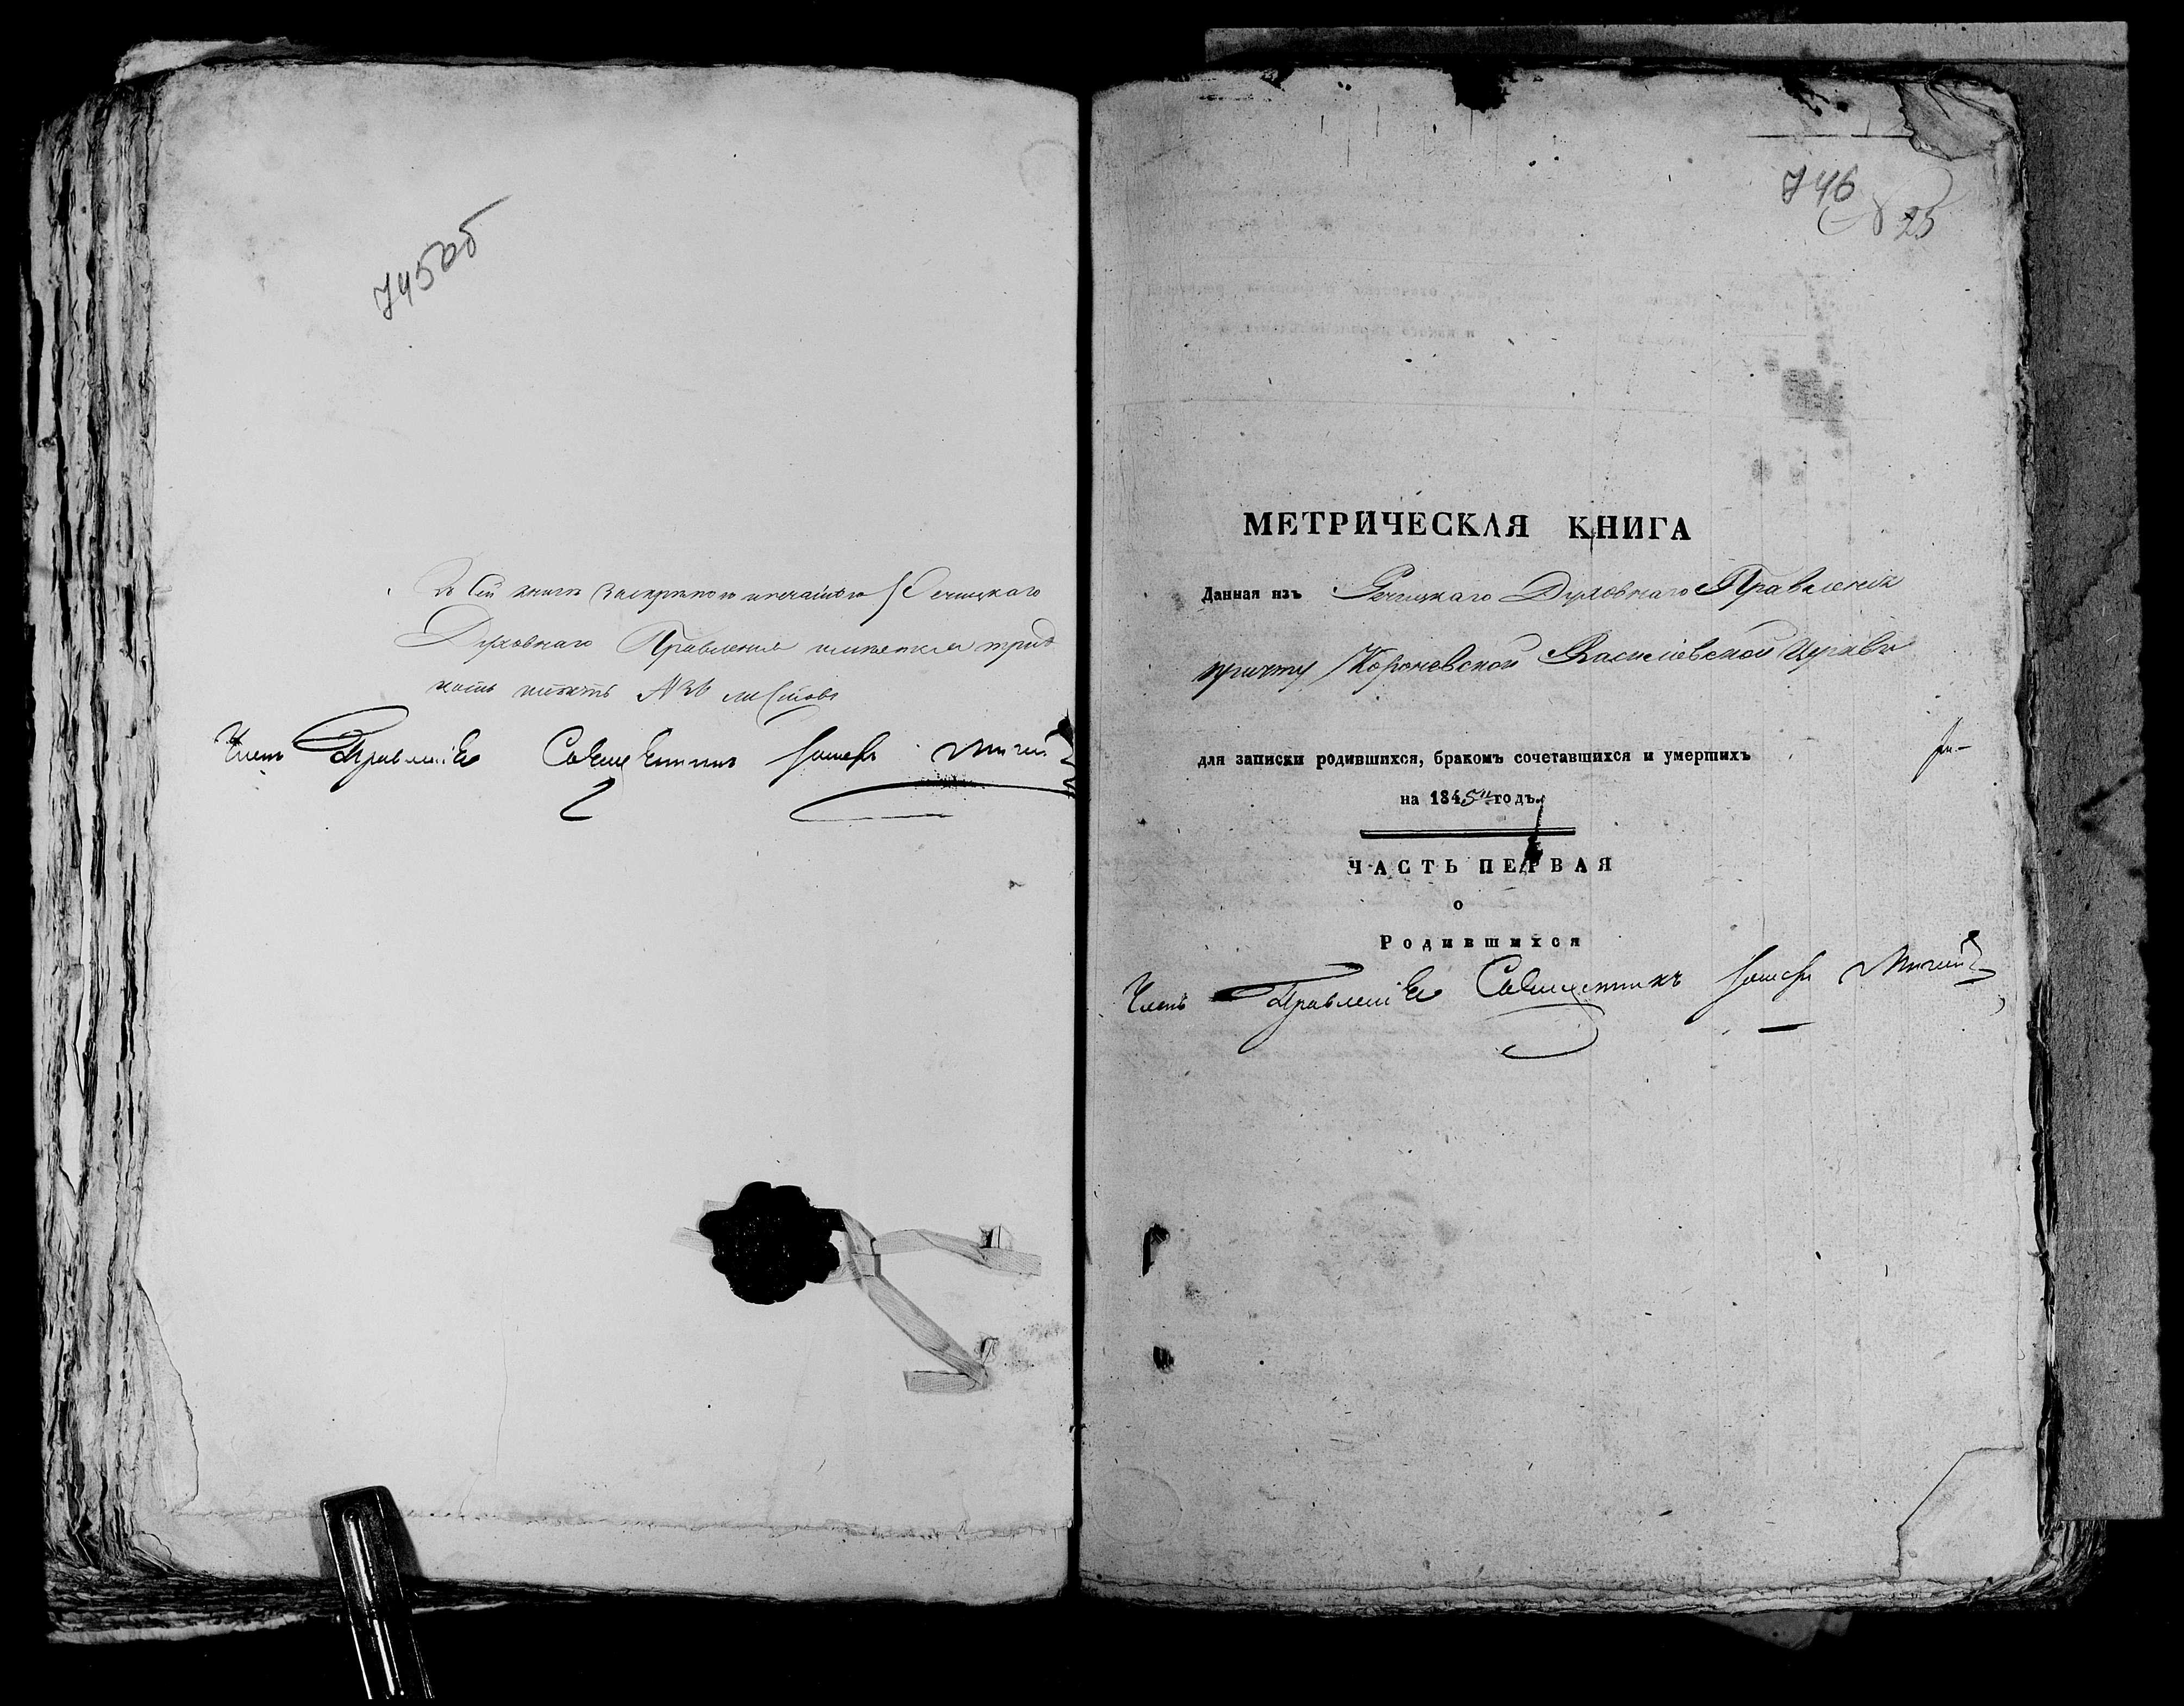 745 об
Въ сей книгѣ за скрѣпою и печатью Речицкаго
Духовнаго Правленія
листовъ
Членъ Правленія Священникъ
746
N 25
МЕТРИЧЕСКАЯ КНИГА
Данная изъ Речицкаго Духовнаго Правленія
причту Короневской Василіевской Церкви
для записки родившихся, бракомъ сочетавшихся и умершихъ
на 1845й годъ.
ЧАСТЬ ПЕРВАЯ
о
Родившихся
Членъ Правленія Священникъ